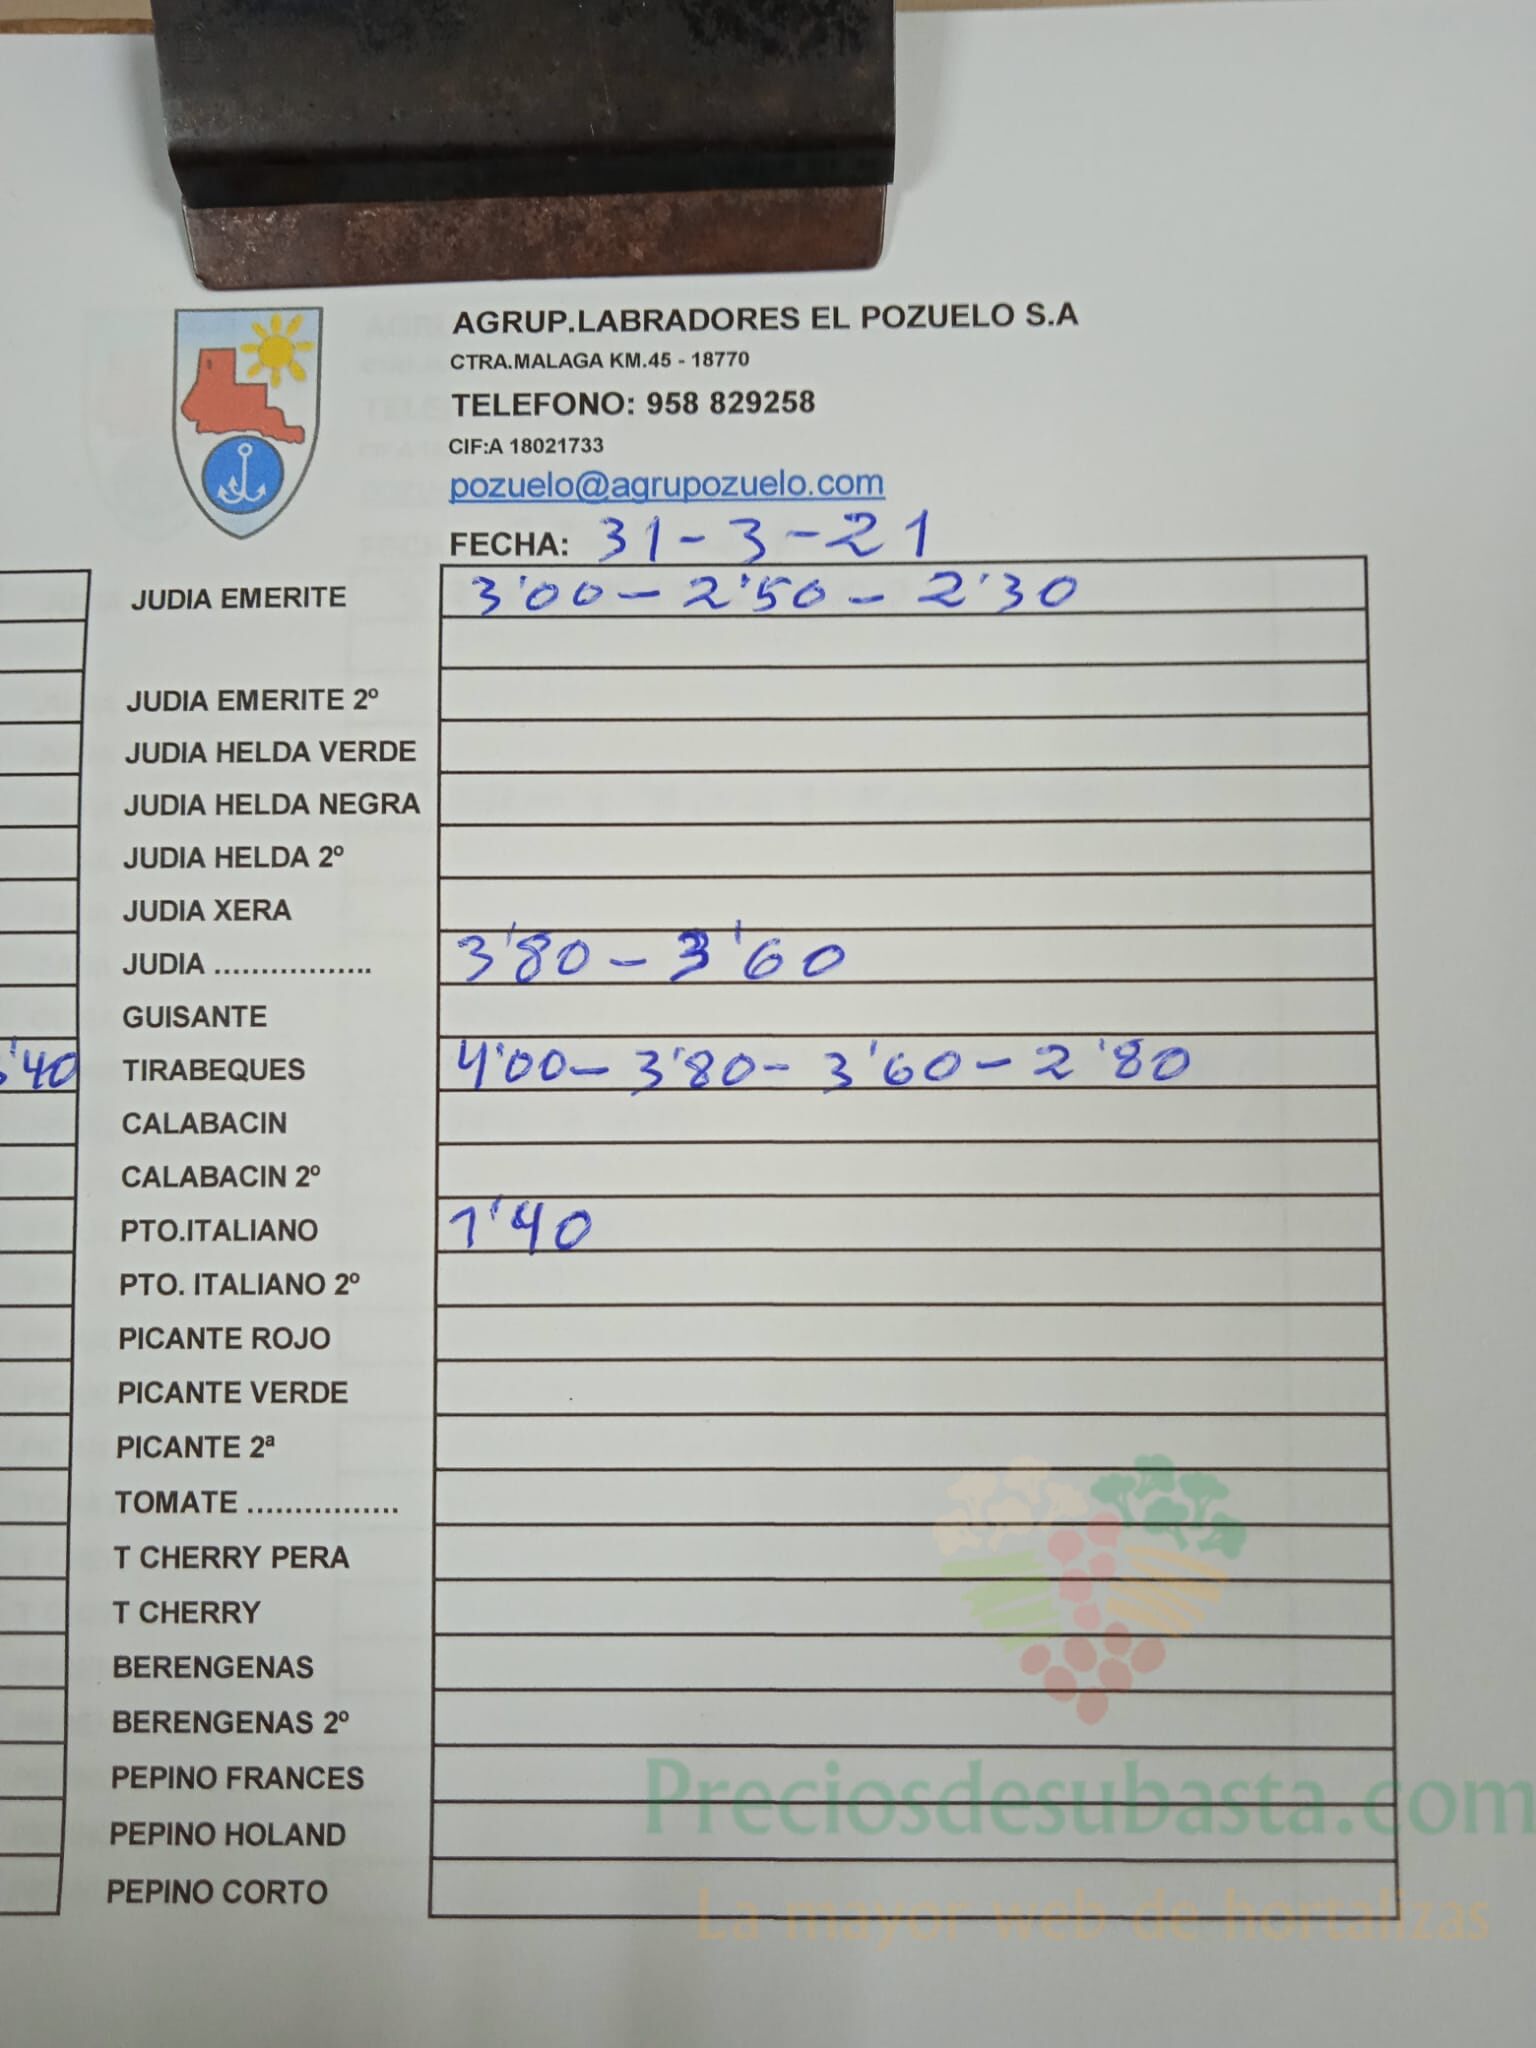 AGRUP.LABRADORES EL POZUELO S.A
CTRA.MALAGA KM.45 - 18770
TELEFONO: 958 829258
CIF:A 18021733
pozuelo@agrupozuelo.com
FECHA: 31-3-21
JUDIA EMERITE 3'00 - 2'50 - 2'30
JUDIA EMERITE 2º
JUDIA HELDA VERDE
JUDIA HELDA NEGRA
JUDIA HELDA 2º
JUDIA XERA
JUDIA ................. 3'80 - 3'60
GUISANTE
'40 TIRABEQUES 4'00 - 3'80 - 3'60 - 2'80
CALABACIN
CALABACIN 2º
PTO.ITALIANO 1'40
PTO. ITALIANO 2º
PICANTE ROJO
PICANTE VERDE
PICANTE 2ª
TOMATE ................
T CHERRY PERA
T CHERRY
BERENGENAS
BERENGENAS 2º
PEPINO FRANCES
PEPINO HOLAND
PEPINO CORTO
Preciosdesubasta.com
La mayor web de hortalizas